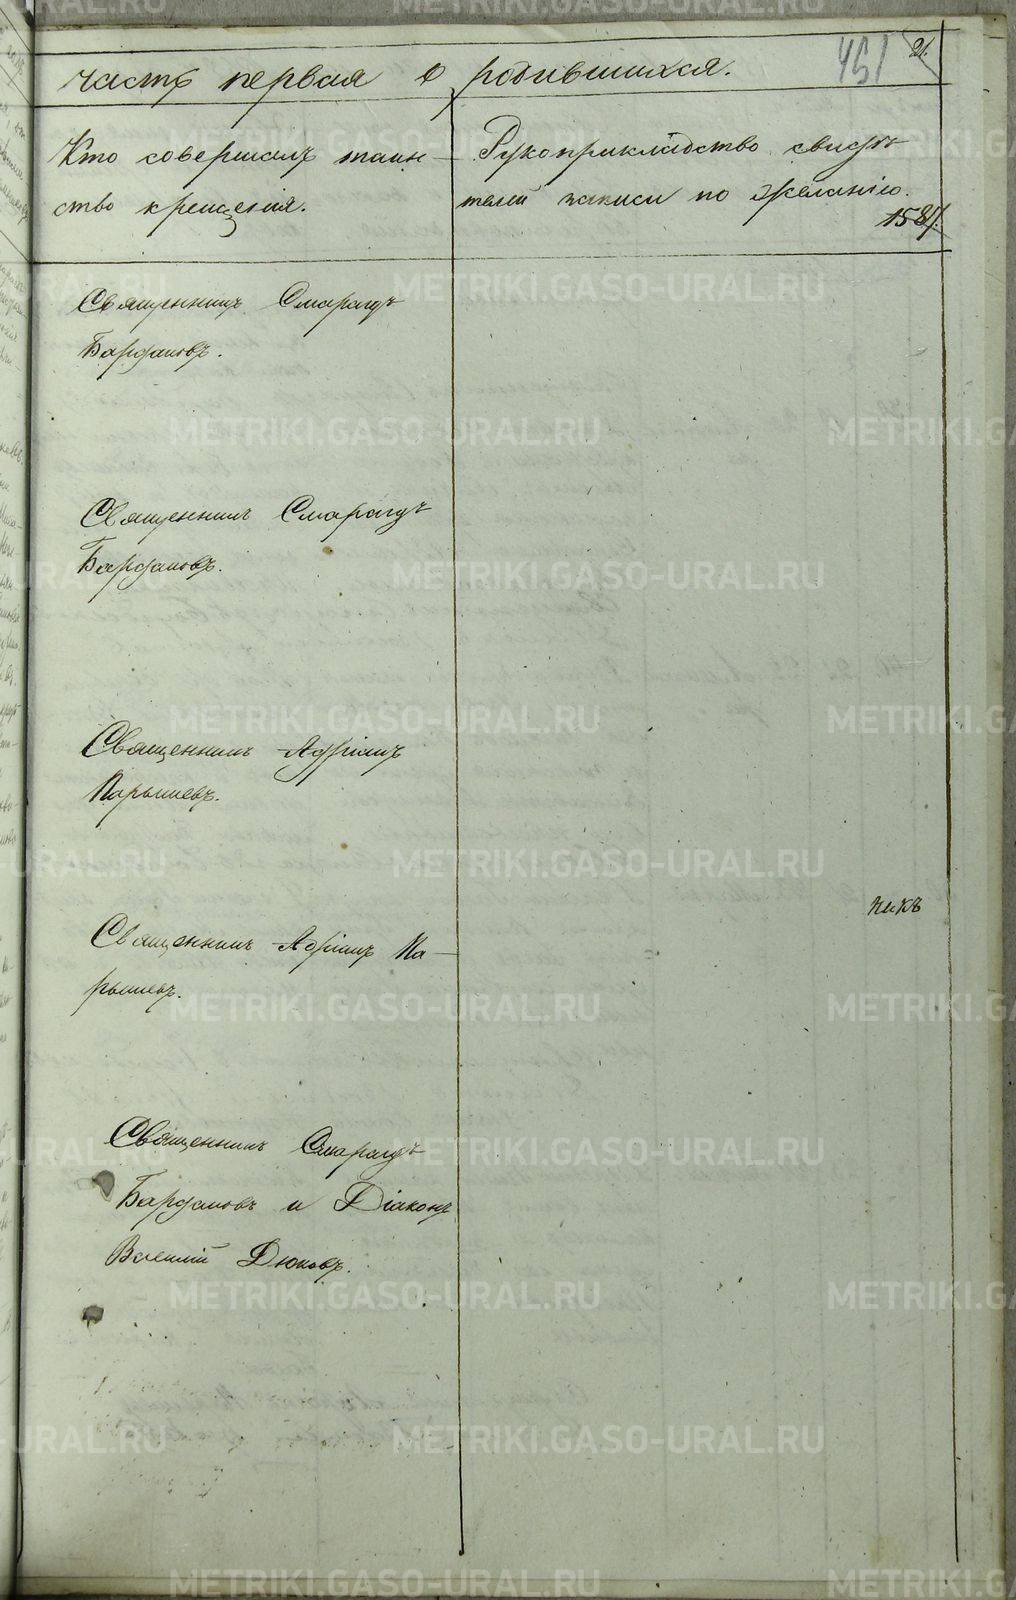 451 21.
часть первая о родившихся.
Кто совершалъ таин-
ство крещенія.
Рукоприкладство свидѣ
телей записи по желанію.
158
Священникъ Смарагдъ
Бардаковъ.
Священникъ Смарагдъ
Бардаковъ.
Священникъ Адріанъ
Карышевъ.
Священникъ Адріанъ Ка-
рышевъ.
никъ
Священникъ Смарагдъ
Бардаковъ и Діаконъ
Василій Дюковъ.
METRIKI.GASO-URAL.RU